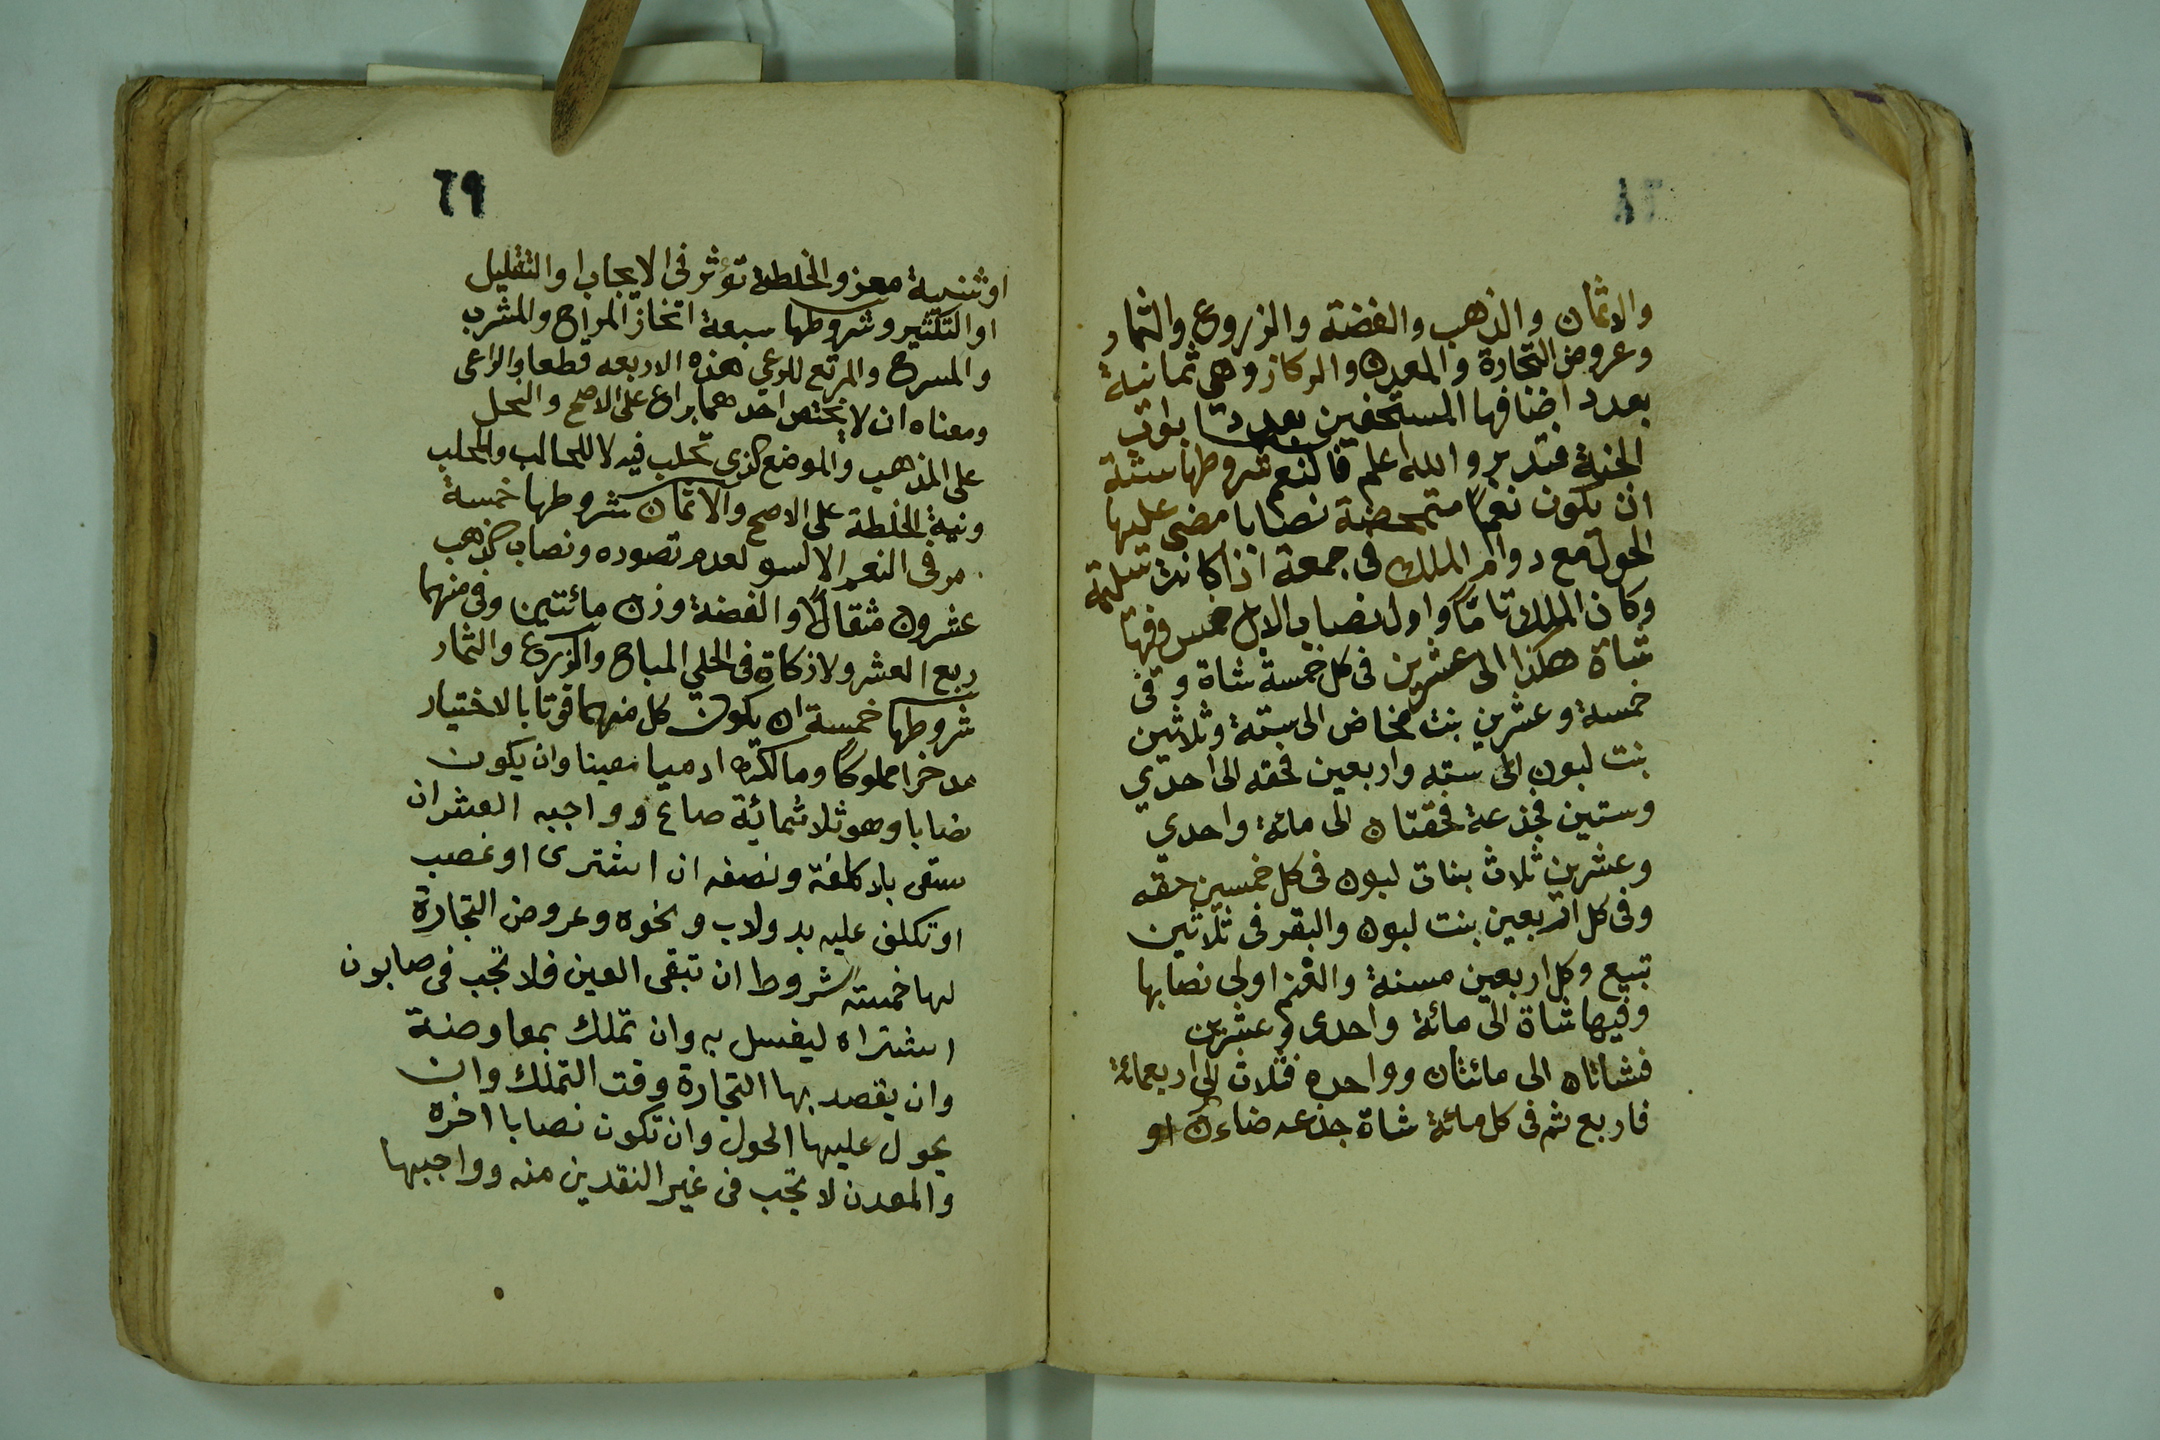 والاثمان والذهب والفضة والزروع والثمار
وعروض التجارة والمعدن والركاز وهي ثمانية
بعدد اصنافها المستحقين بعدد ابواب
الجنة فتدبر والله اعلم فالنعم شروطها ستة
ان يكون نعما متمحضة نصابا مضى عليها
الحول مع دوام الملك في جمعة اذا كانت سليمة
وكان الملك تامًّا واول نصاب الابل خمس وفيها
شاة هكذا الى عشرين في كل خمسة شاة وفي
خمسة وعشرين بنت مخاض الى ستة وثلاثين
بنت لبون الى سته واربعين فحقه الى احدي
وستين فجذعة فحقتان الى مائة واحدي
وعشرين ثلاث بنات لبون في كل خمسين حقه
وفي كل اربعين بنت لبون والبقر في ثلاثين
تبيع وكل اربعين مسنة والغنم اولى نصابها
وفيها شاة الى مائة واحدى وعشرين
فشاتان الى مائتان وواحده فثلاث الى اربعمائة
فاربع ثم في كل مائة شاة جذعه ضاءن او
٦٩
او ثنية معز والخلطة تؤثر في الايجاب والتقليل
او التكثير وشروطها سبعة اتخاذ المراح والمشرب
والمسرح والمرتع للرعي هذه الاربعه قطعا والراعى
ومعناه ان لا يختص احدهما براع على الاصح والبحل
على المذهب والموضع الذي تحلب فيه لا للحالب والمحلب
ونية الخلطة على الاصح والاثمان شروطها خمسة
مر في النعم الا السوم لعدم تصوره ونصاب الذهب
عشرون مثقالًا والفضة وزن مائتين وفي منهما
ربع العشر ولا زكاة في الحلي المباح والزرع والثمار
شروطها خمسة ان يكون كل منهما قوتا بالاختيار
مدخرا مملوكًا ومالكه ادميا معينا وان يكون
نصابا وهو ثلاثمائة صاع وواجبه العشر ان
سقي بلا كلفة ونصفه ان اشترى او غصب
او تكلف عليه بدولاب ونحوه وعروض التجارة
لها خمسة شروط ان تبقى العين فلا تجب في صابون
اشتراه ليغسل به وان تملك بمعاوضة
وان يقصد بها التجارة وقت التملك وان
يحول عليها الحول وان تكون نصابا اخره
والمعدن لا تجب في غير النقدين منه وواجبها